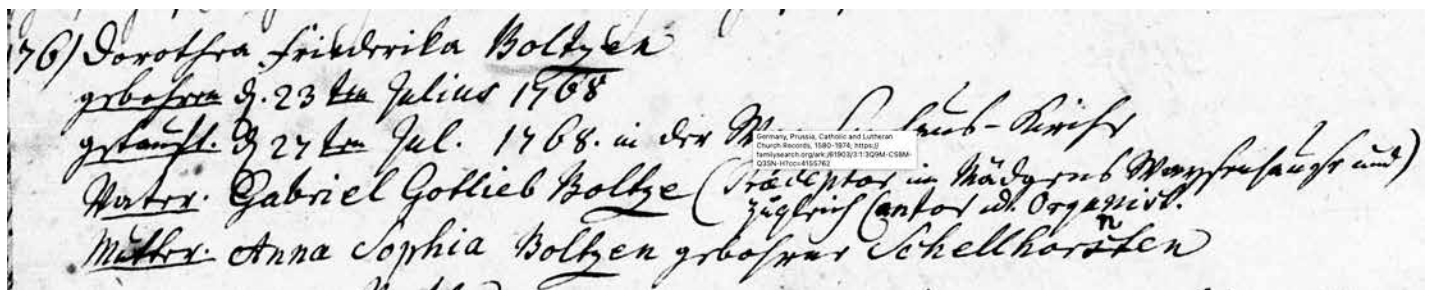 176) Dorothea Friederika Boltzen
gebohren d. 23 ten Julius 1768
getauft. d 27 ten Jul. 1768. in der Kirche
Germany, Prussia, Catholic and Lutheran
Church Records, 1580-1974; https://
familysearch.org/ark:/61903/3:1:3Q9M-CS8M-
Q3SN-H?cc=4155762
Vater. Gabriel Gotlieb Boltze (Präceptor im Mädgens Waysenhause und)
zugleich Cantor ud. Organist.
Mutter. Anna Sophia Boltzen gebohrne Schellhorn